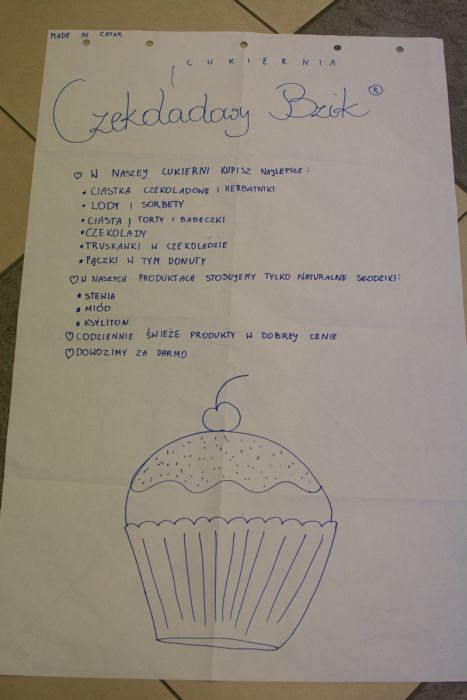 MADE IN CATAR
CUKIERNIA
Czekoladowy Bzik ®
♡ W NASZEJ CUKIERNI KUPISZ NAJLEPSZE:
• CIASTKA CZEKOLADOWE I HERBATNIKI
• LODY I SORBETY
• CIASTA, TORTY I BABECZKI
• CZEKOLADY
• TRUSKAWKI W CZEKOLADZIE
• PĄCZKI W TYM DONUTY
♡ W NASZYCH PRODUKTACH STOSUJEMY TYLKO NATURALNE SŁODZIKI:
* STEWIA
* MIÓD
* KSYLITON
♡ CODZIENNIE ŚWIEŻE PRODUKTY W DOBREJ CENIE
♡ DOWOZIMY ZA DARMO